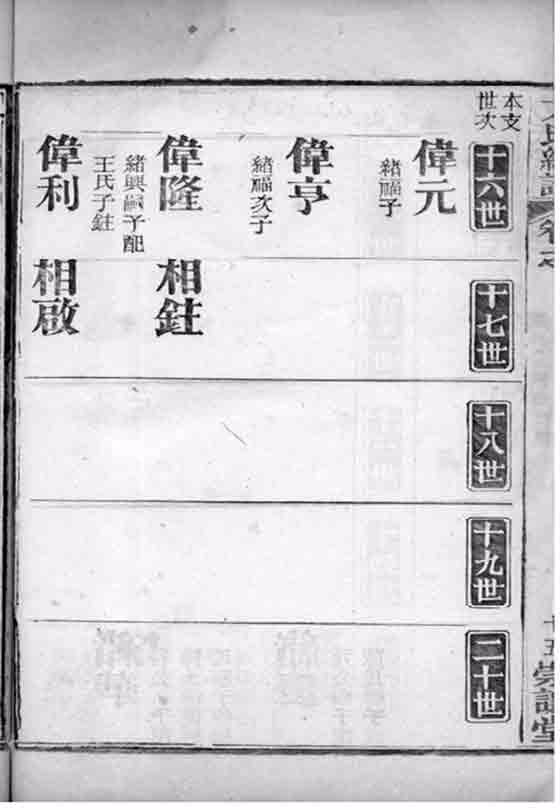 本支
世次
十六世
偉元
緒福子
偉亨
緒福次子
偉隆
緒興嗣子配
王氏子鉒
偉利
十七世
相鉒
相啟
十八世
十九世
二十世
十五